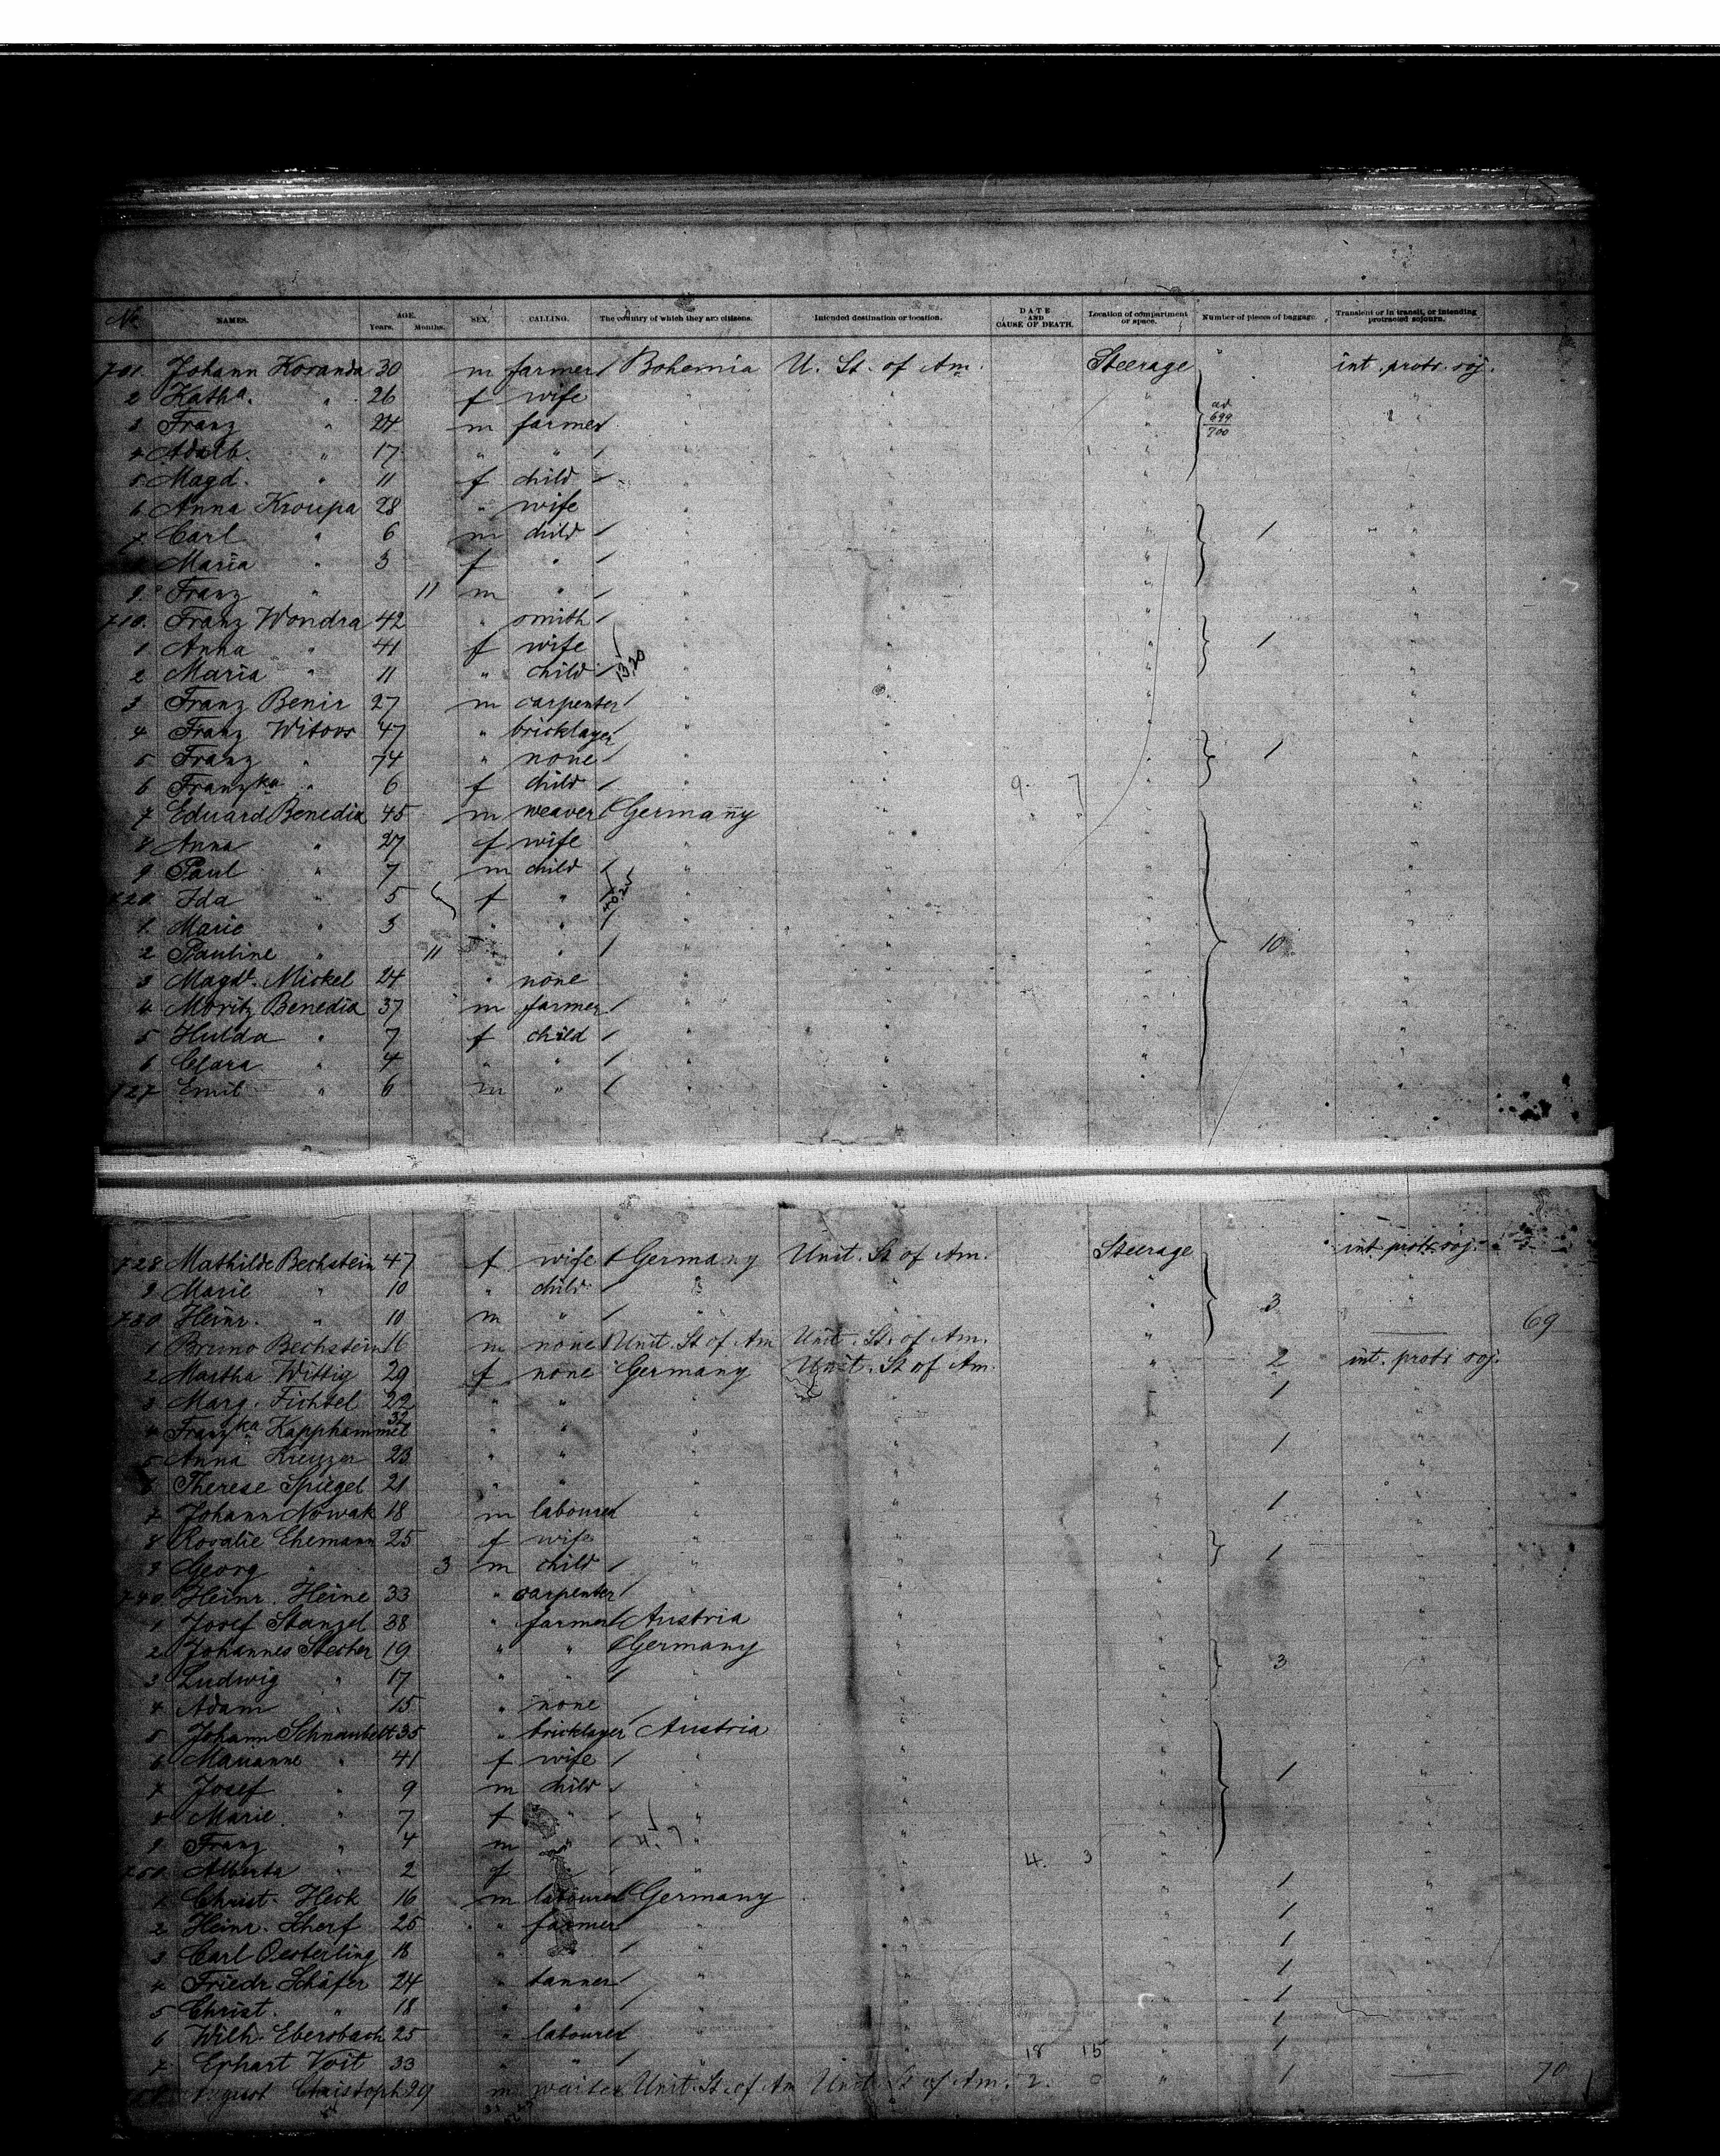 No. NAMES. AGE. Years. Months. SEX. CALLING. The country of which they are citizens. Intended destination or location. DATE AND CAUSE OF DEATH. Location of compartment or space. Number of pieces of baggage. Transient or in transit, or intending protracted sojourn.
701. Johann Koranda 30 m farmer Bohemia U. St. of Am. Steerage " int. protr. soj.
2 Katha. " 26 f wife " " " ad 699/700 "
3 Franz " 24 m farmer " " " "
4 Adalb. " 17 " " " " " "
5 Magd. " 11 f child " " " "
6 Anna Kroupa 28 " wife " " " "
7 Carl " 6 m child " " " 1 "
8 Maria " 3 f " " " " "
9. Franz " 11 m " " " " "
710. Franz Wondra 42 " smith " " " "
1 Anna " 41 f wife " " " 1 "
2 Maria " 11 " child 13.20 " " " "
3 Franz Benir 27 m carpenter " " " "
4 Franz Witovs 47 " bricklayer " " " "
5 Franz " 74 " none " " " 1 "
6 Franzka " 6 f child " " 9. 7 " "
7 Eduard Benedix 45 m weaver Germany " " " "
8 Anna " 27 f wife " " " "
9 Paul " 7 m child " " " "
720. Ida " 5 f " " " " "
1. Marie " 3 " " " " " "
2 Pauline " 11 " " " " " 10 "
3 Magd. Mickel 24 " none " " " "
4 Moritz Benedix 37 m farmer " " " "
5 Hulda " 7 f child " " " "
6 Clara " 4 " " " " " "
727 Emil " 6 m " " " " "
728 Mathilde Bechstein 47 f wife Germany Unit. St of Am. Steerage int. protr. soj.
9 Marie " 10 " child " " " "
730 Heinr. " 10 m " " " " 3 "
69
1 Bruno Bechstein 16 m none Unit. St of Am Unit. St. of Am. "
2 Martha Wittig 29 f none Germany Unit. St of Am. " 2 int. protr. soj.
3 Marg. Fichtel 22 " " " " " 1 "
4 Franzka Kapphammel 32 " " " " " "
5 Anna Kreuzer 23 " " " " " 1 "
6 Therese Spiegel 21 " " " " " "
7 Johann Nowak 18 m labourer " " " 1 "
8 Rosalie Ehemann 25 f wife " " " "
9 Georg " 3 m child " " " 1 "
740. Heinr. Heine 33 " carpenter " " " "
1 Josef Stanzel 38 " farmer Austria " " "
2 Johannes Stecher 19 " " Germany " " "
3 Ludwig " 17 " " " " " 3 "
4 Adam " 15 " none " " " "
5 Johann Schnaubelt 35 " bricklayer Austria " " "
6 Marianne " 41 f wife " " " "
7 Josef " 9 m child " " " 1 "
8 Marie " 7 f " " " " "
9 Franz " 4 m " 4. 7 " " " "
750. Alberta " 2 f " " " 4. 3 " "
1. Christ. Heck 16 m labourer Germany " " 1 "
2 Heinr. Scherf 25 " farmer " " " 1 "
3 Carl Oesterling 18 " " " " " 1 "
4 Friedr. Schäfer 24 " tanner " " " 1 "
5 Christ. " 18 " " " " " 1 "
6 Wilh. Ebersbach 25 " labourer " " " 1 "
7 Erhart Voit 33 " " " " 18 15 " 1 "
758 August Christoph 29 m waiter Unit. St. of Am Unit. St of Am. 2. 0 " 1
70